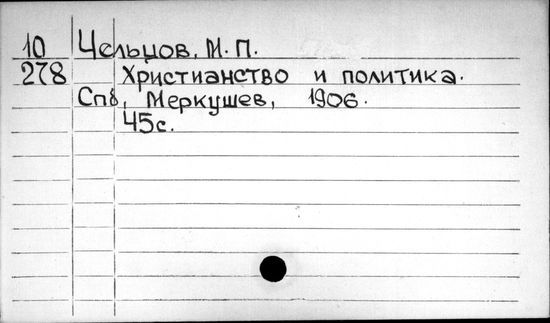 10 Чельцов, М. П.
278 Христианство и политика.
Спб, Меркушев, 1906.
45с.